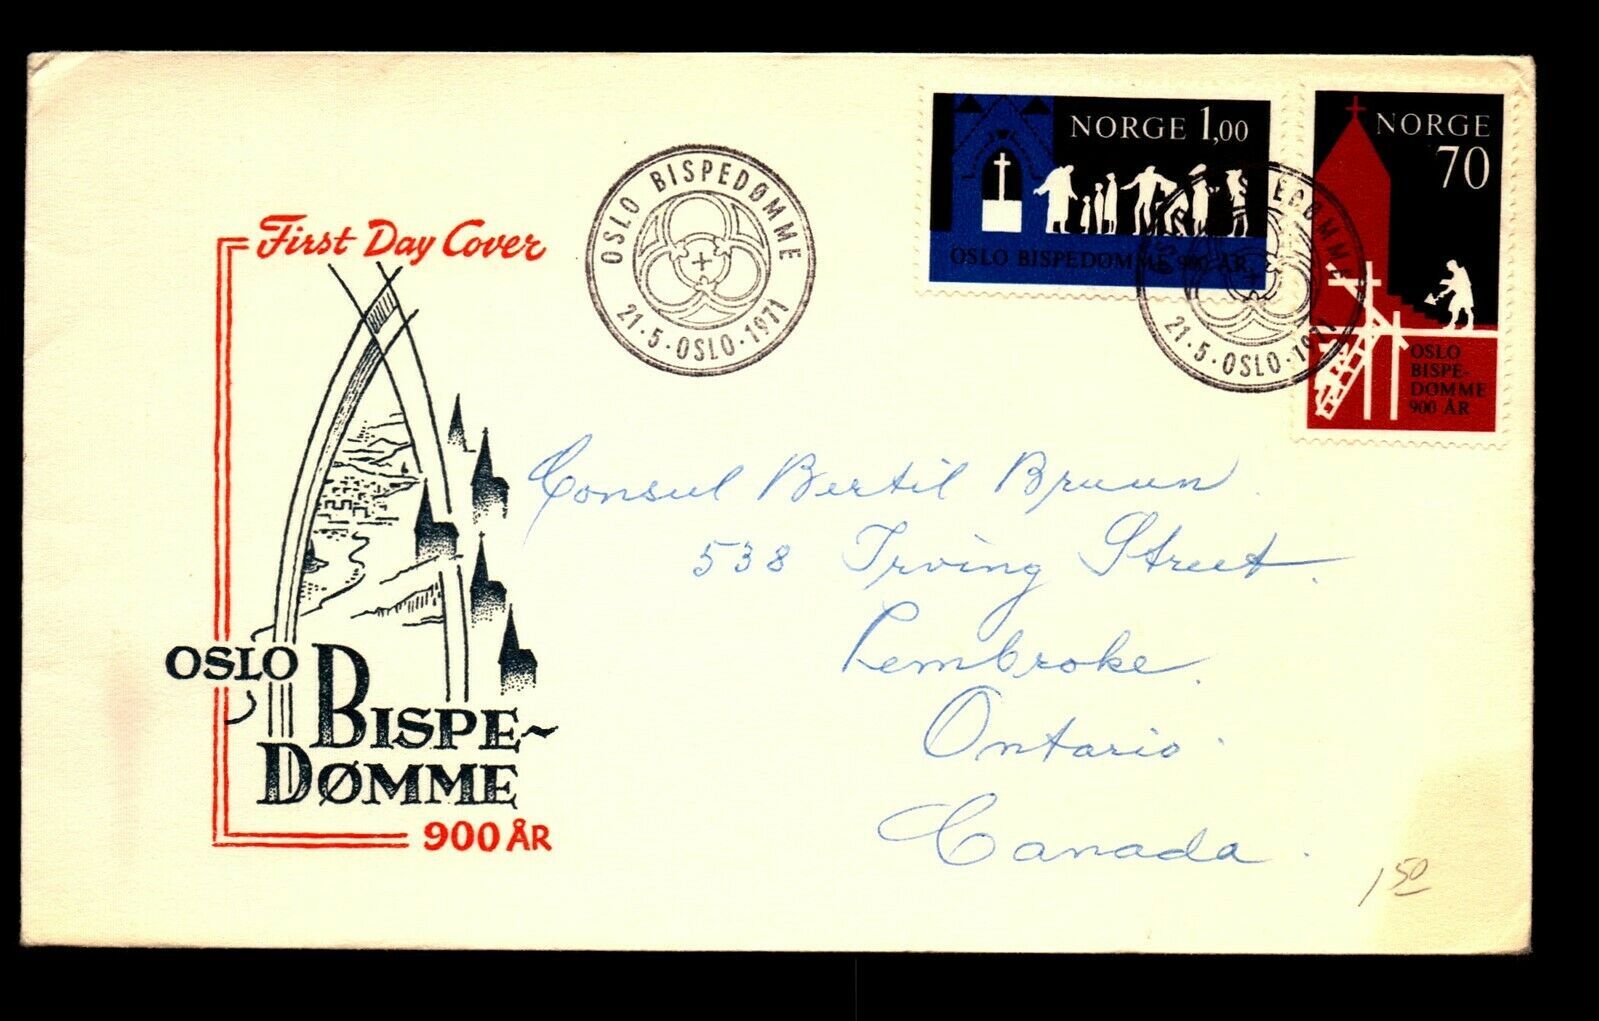 First Day Cover
OSLO BISPEDØMME
21·5·OSLO·1971
NORGE 1,00
OSLO BISPEDØMME 900 ÅR
NORGE
70
OSLO
BISPE-
DØMME
900 ÅR
BISPEDØMME
21·5·OSLO·1971
Consul Bertil Bruun.
538 Irving Street.
Pembroke.
Ontario.
Canada.
OSLO BISPE~
DØMME
900 ÅR
1 50